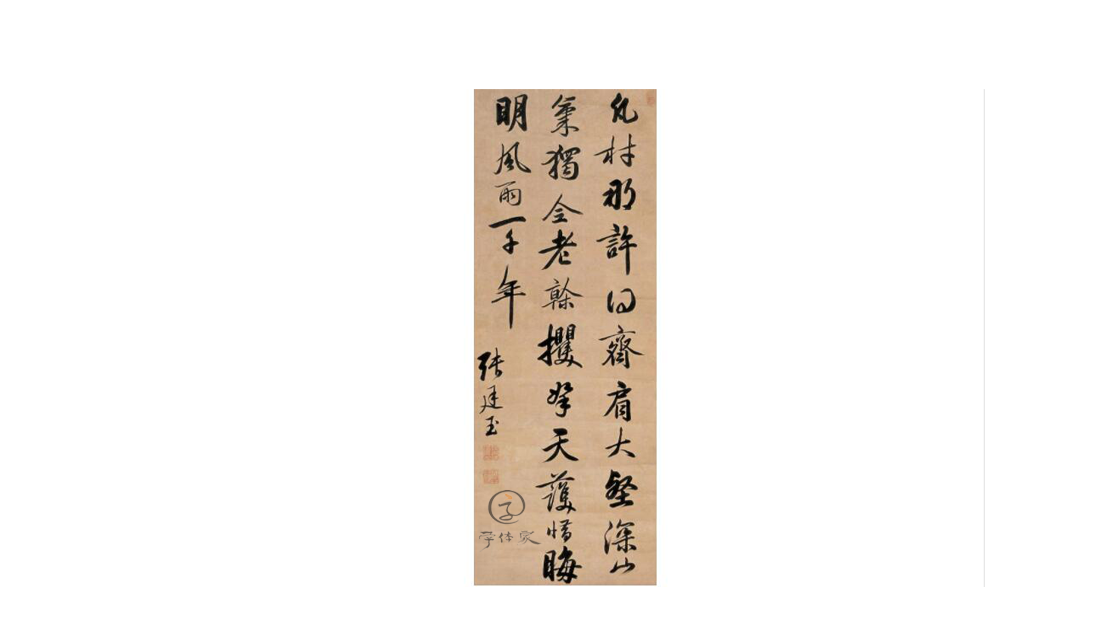 凡材那許得齊肩大壑深山
氣獨全老榦攫拏天護惜晦
明風雨一千年
張廷玉
字体家